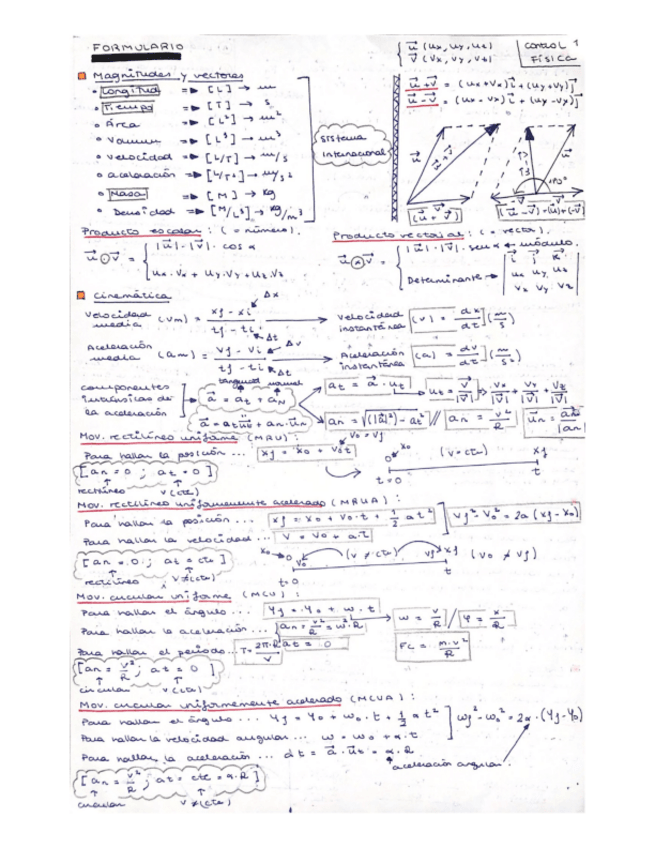 FORMULARIO
{ u⃗ (ux, uy, uz)
v⃗ (vx, vy, vz)
CONTROL 1
FÍSICA
Magnitudes y vectores
• Longitud => [L] → m
• Tiempo => [T] → s
• Área => [L²] → m²
• Volumen => [L³] → m³
• Velocidad => [L/T] → m/s
• aceleración => [L/T²] → m/s²
• Masa => [M] → kg
• Densidad => [M/L³] → kg/m³
Sistema
Internacional
u⃗+v⃗ = (ux+vx)i⃗ + (uy+vy)j⃗
u⃗-v⃗ = (ux-vx)i⃗ + (uy-vy)j⃗
u⃗
u⃗+v⃗
(u⃗+v⃗)
u⃗
(u⃗-v⃗)=(u⃗)+(-v⃗)
Producto escalar: (= número).
u⃗⊙v⃗ = { |u⃗|·|v⃗|· cos α
ux·vx + uy·vy + uz·vz
Producto vectorial: (= vector).
u⃗⊗v⃗ = { |u⃗|·|v⃗|·sen α ← módulo.
Determinante → | i⃗ j⃗ k⃗ |
| ux uy uz |
| vx vy vz |
Cinemática
Velocidad media (vm) = xf - xi / tf - ti
Δx
Δt
Velocidad instantánea (v) = dx/dt (m/s)
Aceleración media (am) = vf - vi / tf - ti
Δv
Δt
Aceleración instantánea (a) = dv/dt (m/s²)
componentes
intrínsicas de
la aceleración
tangencial normal
a⃗ = at + aN
a⃗ = at·u⃗t + an·u⃗n
at = a⃗ · ut
ut = v⃗/|v⃗| => vx/|v⃗| + vy/|v⃗| + vz/|v⃗|
an = √(|a⃗|²) - at² // an = v²/R
u⃗n = an/|an|
Mov. rectilíneo uniforme (MRU):
v0 = vf
Para hallar la posición ... xf = x0 + v0t
[an = 0 ; at = 0]
rectilíneo v (cte)
x0 (v = cte) xf
0 t
t=0
Mov. rectilíneo uniformemente acelerado (MRUA):
Para hallar la posición ... xf = x0 + v0·t + 1/2 at²
vf² - v0² = 2a (xf - x0)
Para hallar la velocidad ... v = v0 + a·t
[an = 0 ; at = cte]
rectilíneo v ≠ (cte)
x0 0 v0 (v ≠ cte) vf xf (v0 ≠ vf)
t=0 t
Mov. circular uniforme (MCU):
Para hallar el ángulo ... φf = φ0 + w·t
w = v/R // φ = x/R
Para hallar la aceleración ... { an = v²/R = w²·R
at = 0
Para hallar el período ... T = 2π·R/v
Fc = m·v²/R
[an = v²/R ; at = 0]
circular v (cte)
Mov. circular uniformemente acelerado (MCUA):
Para hallar el ángulo ... φf = φ0 + w0·t + 1/2 α t²
wf² - w0² = 2α·(φf - φ0)
Para hallar la velocidad angular ... w = w0 + α·t
Para hallar la aceleración ... at = a⃗·u⃗t = α·R
aceleración angular
[an = v²/R ; at = cte = α·R]
circular v ≠ (cte)